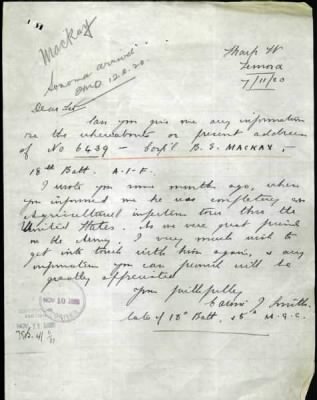 Mackay
Sonoma arrived
12.8.20
Tharp St
Temora
7/11/20
Dear Sir
Can you give me any information
on the whereabouts or present address
of No 6439 – Corp'l B. E. MACKAY,
18th Batt. A.I.F.
I wrote you some month ago, when
you informed me he was completing an
Agricultural inspection tour thru the
United States. As we were great friends
in the Army. I very much wish to
get into touch with him again, & any
information you can furnish will be
greatly appreciated
Yours faithfully
J. Smith
late of 18th Batt, 5th M.G.C.
NOV 10 1920
NOV 11 1920